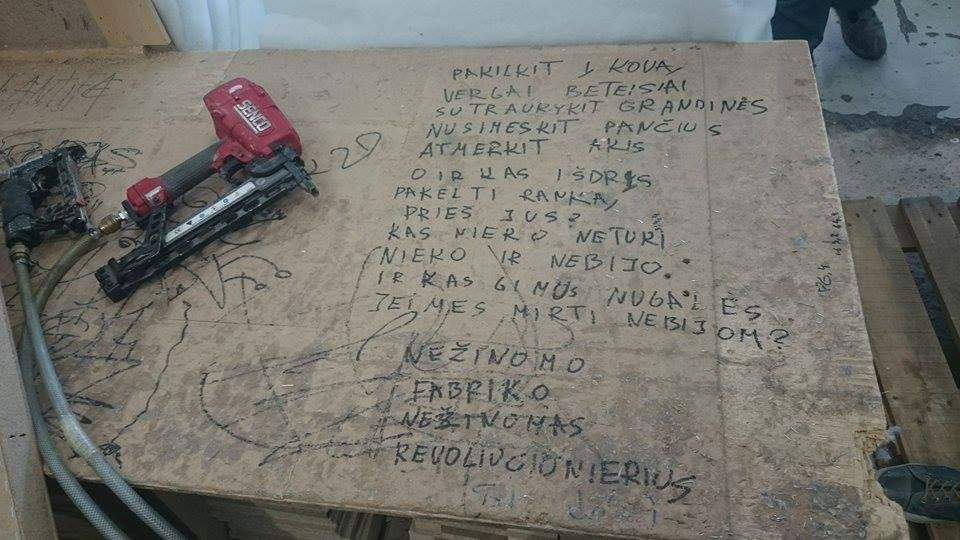 SENCO
PAKILKIT Į KOVĄ
VERGAI BETEISIAI
SUTRAUKYKIT GRANDINĖS
NUSIMESKIT PANČIUS
ATMERKIT AKIS
O IR KAS IŠDRĮS
PAKELTI RANKĄ
PRIEŠ JUS?
KAS NIEKO NETURI
NIEKO IR NEBIJO.
IR KAS GI MUS NUGALĖS
JEI MES MIRTI NEBIJOM?
NEŽINOMO
FABRIKO
NEŽINOMAS
REVOLIUCIONIERIUS